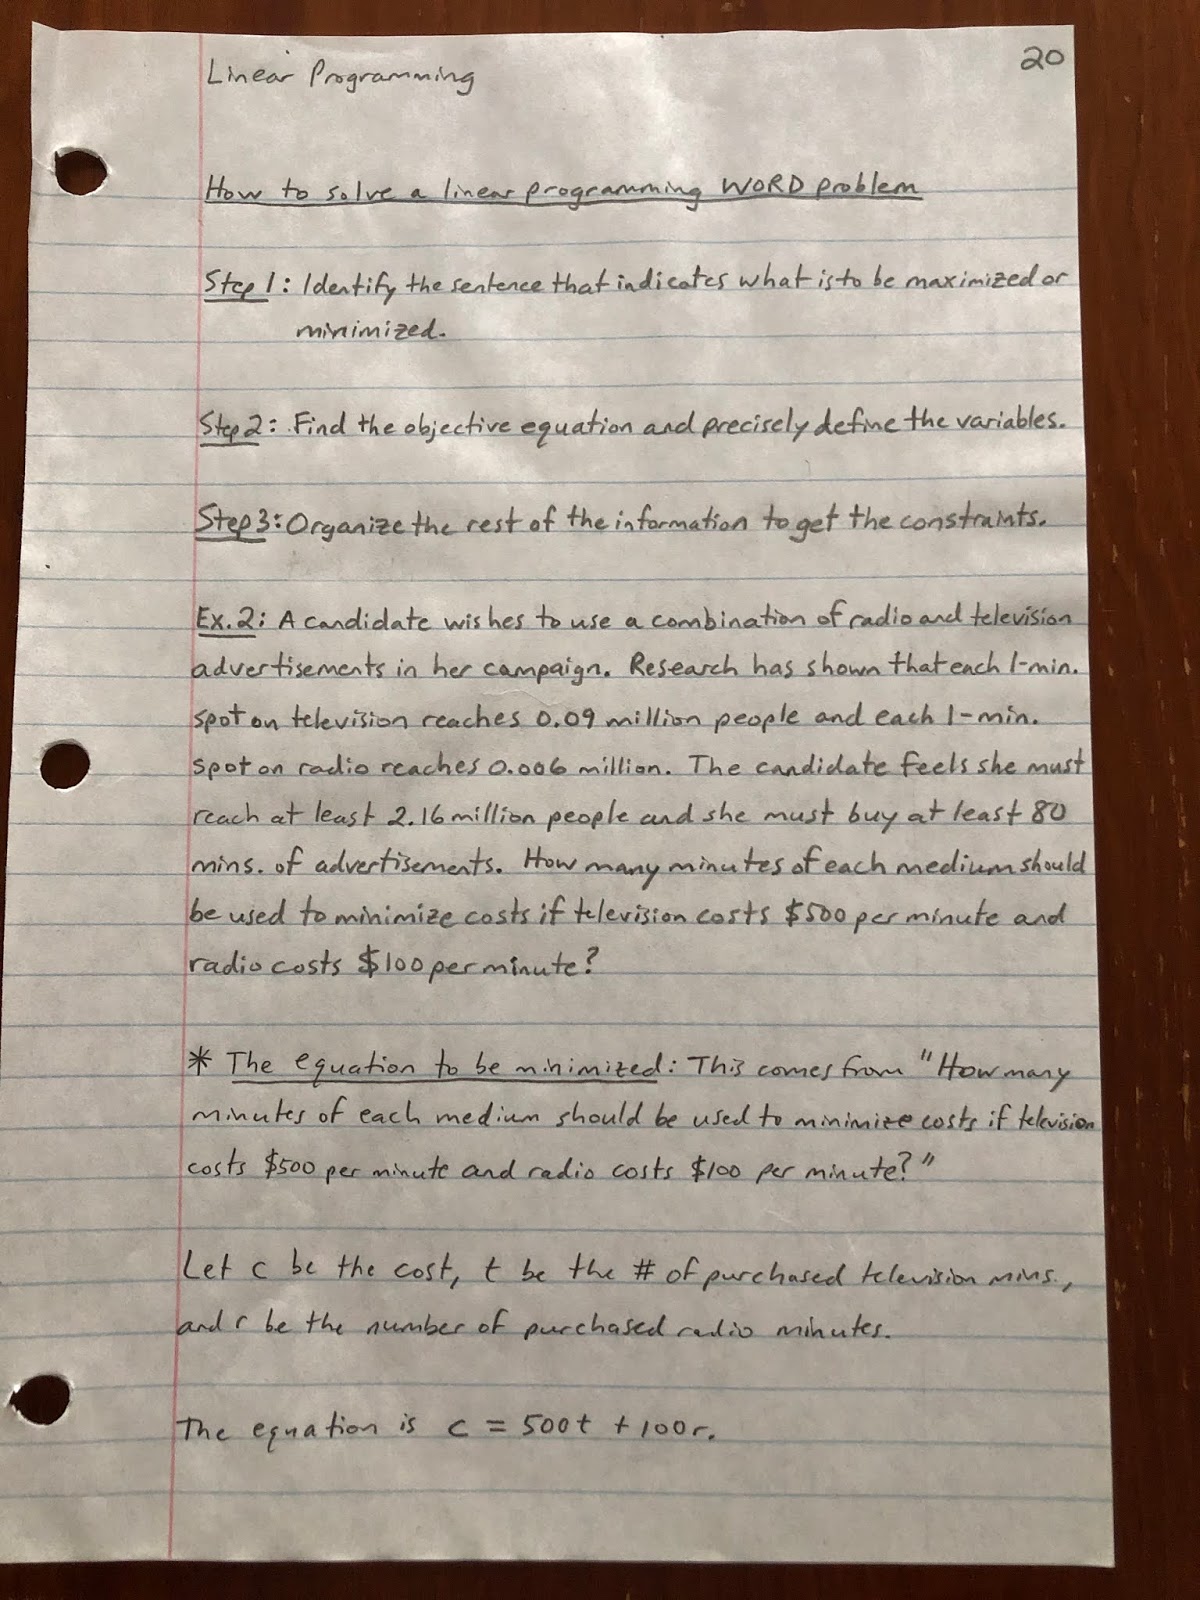 Linear Programming
20
How to solve a linear programming WORD problem
Step 1: Identify the sentence that indicates what is to be maximized or
minimized.
Step 2: Find the objective equation and precisely define the variables.
Step 3: Organize the rest of the information to get the constraints.
Ex. 2: A candidate wishes to use a combination of radio and television
advertisements in her campaign. Research has shown that each 1-min.
spot on television reaches 0.09 million people and each 1-min.
spot on radio reaches 0.006 million. The candidate feels she must
reach at least 2.16 million people and she must buy at least 80
mins. of advertisements. How many minutes of each medium should
be used to minimize costs if television costs $500 per minute and
radio costs $100 per minute?
* The equation to be minimized: This comes from "How many
minutes of each medium should be used to minimize costs if television
costs $500 per minute and radio costs $100 per minute?"
Let c be the cost, t be the # of purchased television mins.,
and r be the number of purchased radio minutes.
The equation is c = 500t + 100r.